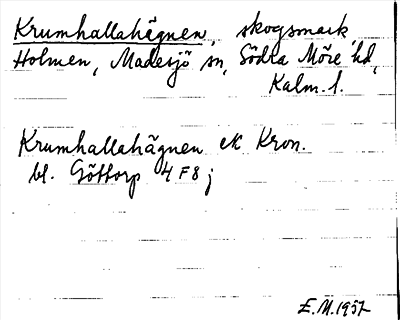 Krumhallahägnen, skogsmark,
Holmen, Madesjö sn, Södra Möre hd,
Kalm. l.
Krumhallahägnen ek Kron.
bl. Göttorp 4 F 8 j
E.M. 1957